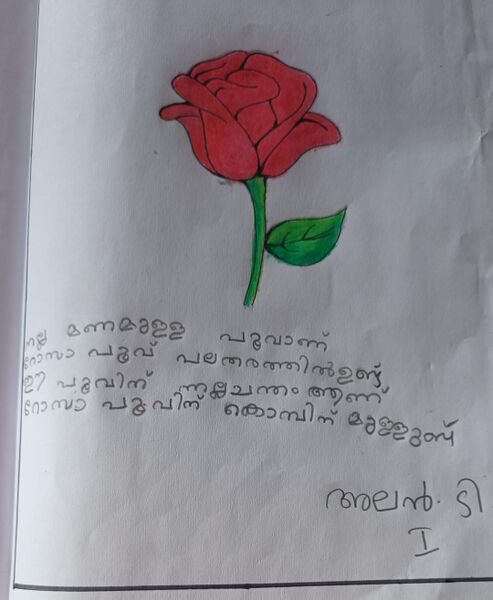 നല്ല മണമുള്ള പൂവാണ്
റോസാ പൂവ് പലതരത്തിൽ ഉണ്ട്
ഈ പൂവിന് നല്ലചന്തം ആണ്
റോസാ പൂവിന് കൊമ്പിന് മുള്ളുണ്ട്
അലൻ. ടി
I